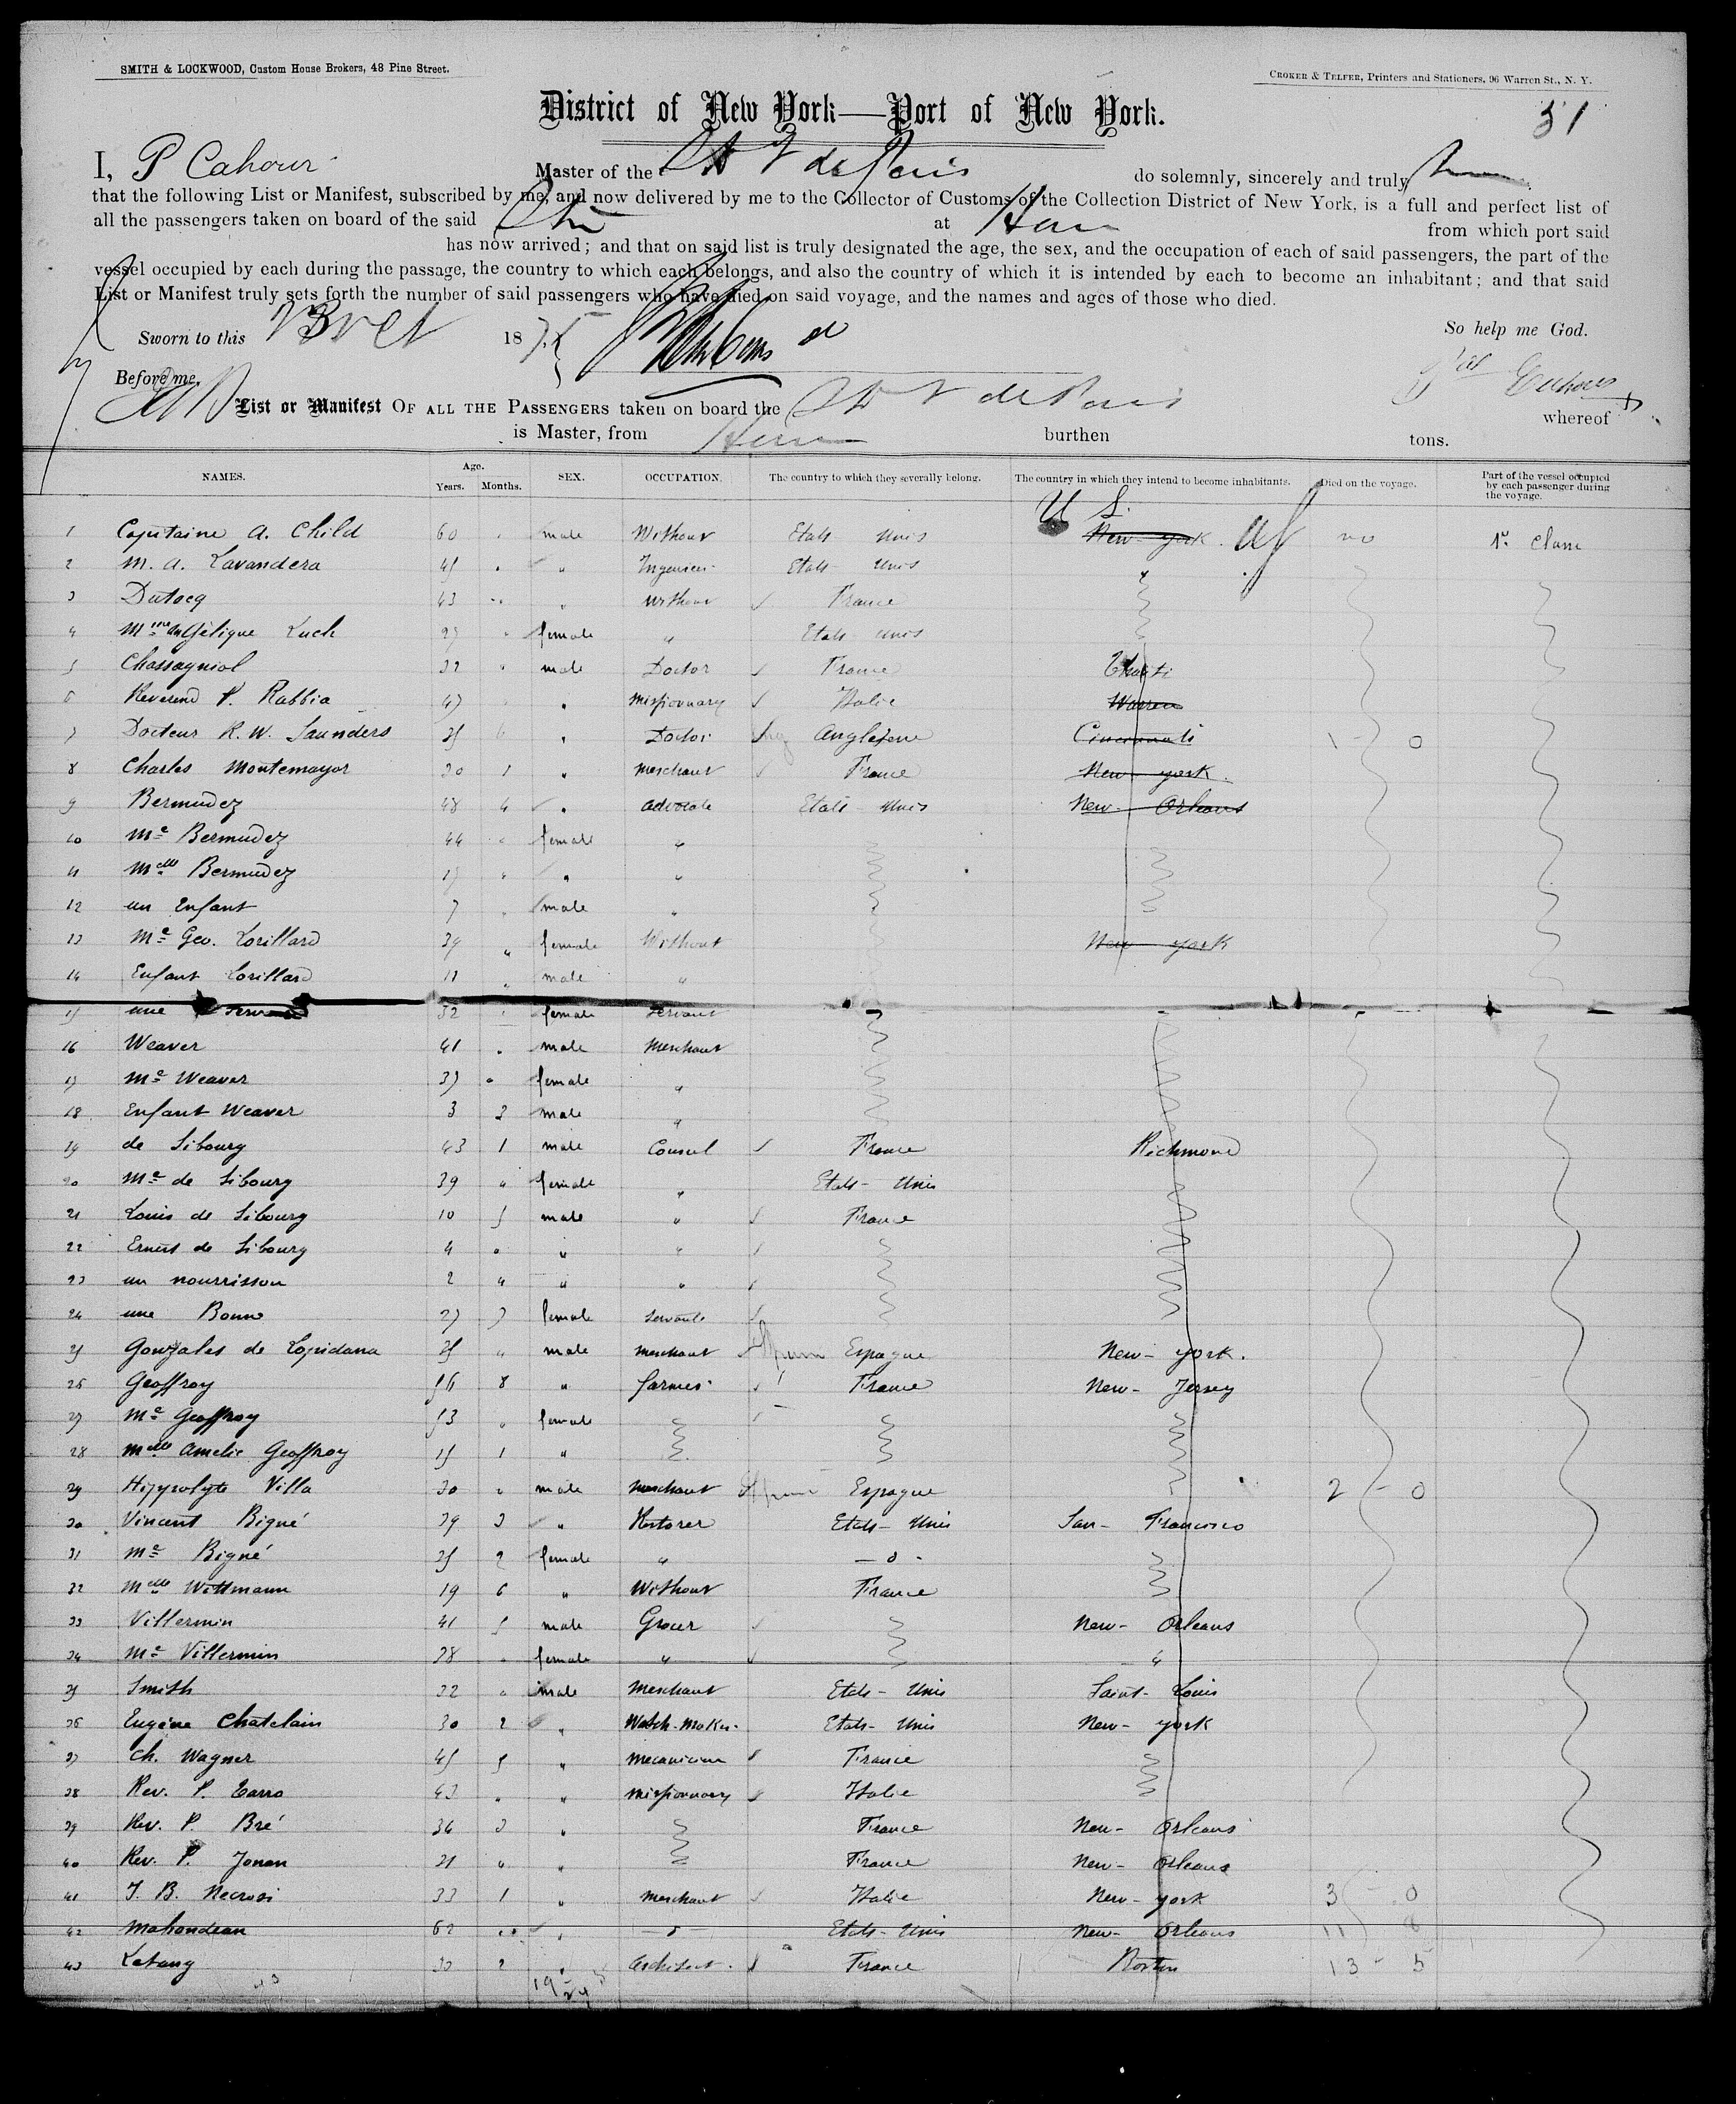 SMITH & LOCKWOOD, Custom House Brokers, 48 Pine Street.
CROKER & TELFER, Printers and Stationers, 96 Warren St., N. Y.
District of New York—Port of New York.
31
I, P Cahour Master of the St V de Paris do solemnly, sincerely and truly
that the following List or Manifest, subscribed by me, and now delivered by me to the Collector of Customs of the Collection District of New York, is a full and perfect list of
all the passengers taken on board of the said at from which port said
has now arrived; and that on said list is truly designated the age, the sex, and the occupation of each of said passengers, the part of the
vessel occupied by each during the passage, the country to which each belongs, and also the country of which it is intended by each to become an inhabitant; and that said
List or Manifest truly sets forth the number of said passengers who have died on said voyage, and the names and ages of those who died.
So help me God.
Sworn to this 187
Before me,
List or Manifest OF ALL THE PASSENGERS taken on board the St V de Paris whereof
is Master, from burthen tons.
NAMES. Age. Years. Months. SEX. OCCUPATION. The country to which they severally belong. The country in which they intend to become inhabitants. Died on the voyage. Part of the vessel occupied by each passenger during the voyage.
U S.
1 Capitaine A. Child 60 male Without Etats Unis New york. no 1re Class
2 M. A. Lavandera 45 " Etats Unis "
3 Dutocq 43 " Without France
4 Mme Angélique Luch 27 female " Etats Unis
5 Chassagniol 32 male Doctor France
6 Reverend P. Rabbia 47 " Missionnary Italie Warren
7 Docteur R. W. Saunders 35 " Doctor Angleterre Cincinnati 1 - 0
8 Charles Montemayor 30 1 " Merchant France New york.
9 Bermudez 48 4 " advocate Etats Unis New Orleans
10 Me Bermudez 44 " female "
11 Melle Bermudez 17 " " "
12 un Enfant 7 male "
13 Me Geo. Lorillard 39 " female Without New york
14 Enfant Lorillard 11 " male "
15 une 32 " female Servant
16 Weaver 41 male Merchant
17 Me Weaver 37 female "
18 Enfant Weaver 3 3 male "
19 de Sibourg 43 1 male Consul France Richmond
20 Me de Sibourg 39 " female " Etats-Unis
21 Louis de Sibourg 10 5 male " France
22 Ernest de Sibourg 4 " " "
23 un nourrisson 2 " " "
24 une Bonne 27 7 female servante
25 Gonzales de Lopidana 25 " male merchant Espagne New-york.
26 Geoffroy 56 8 " farmer France New-Jersey
27 Me Geoffroy 53 " female
28 Melle Amelie Geoffroy 15 1 "
29 Hippolyte Villa 30 " male merchant Espagne 2 - 0
30 Vincent Bigné 39 3 " Restorer Etats-Unis San-Francisco
31 Me Bigné 35 2 female " -o-
32 Melle Wittmann 19 6 " Without France
33 Villermin 41 5 male Grocer New-Orleans
34 Me Villermin 38 " female " "
35 Smith 32 " male Merchant Etats-Unis Saint-Louis
36 Eugène Chatelain 30 2 " Watch-maker Etats-Unis New-york
37 Ch. Wagner 45 5 " mecanicien France
38 Rev. P. Carro 43 " " missionnary Italie
39 Rev. P. Bré 36 3 " France New-Orleans
40 Rev. P. Jonan 21 " " France New-Orleans
41 J. B. Necrosi 33 1 " merchant Italie New-york 3 - 0
42 Mahondeau 62 " -o- Etats-Unis New-Orleans 11
43 Latang 30 2 " architect. France Boston 13 - 5